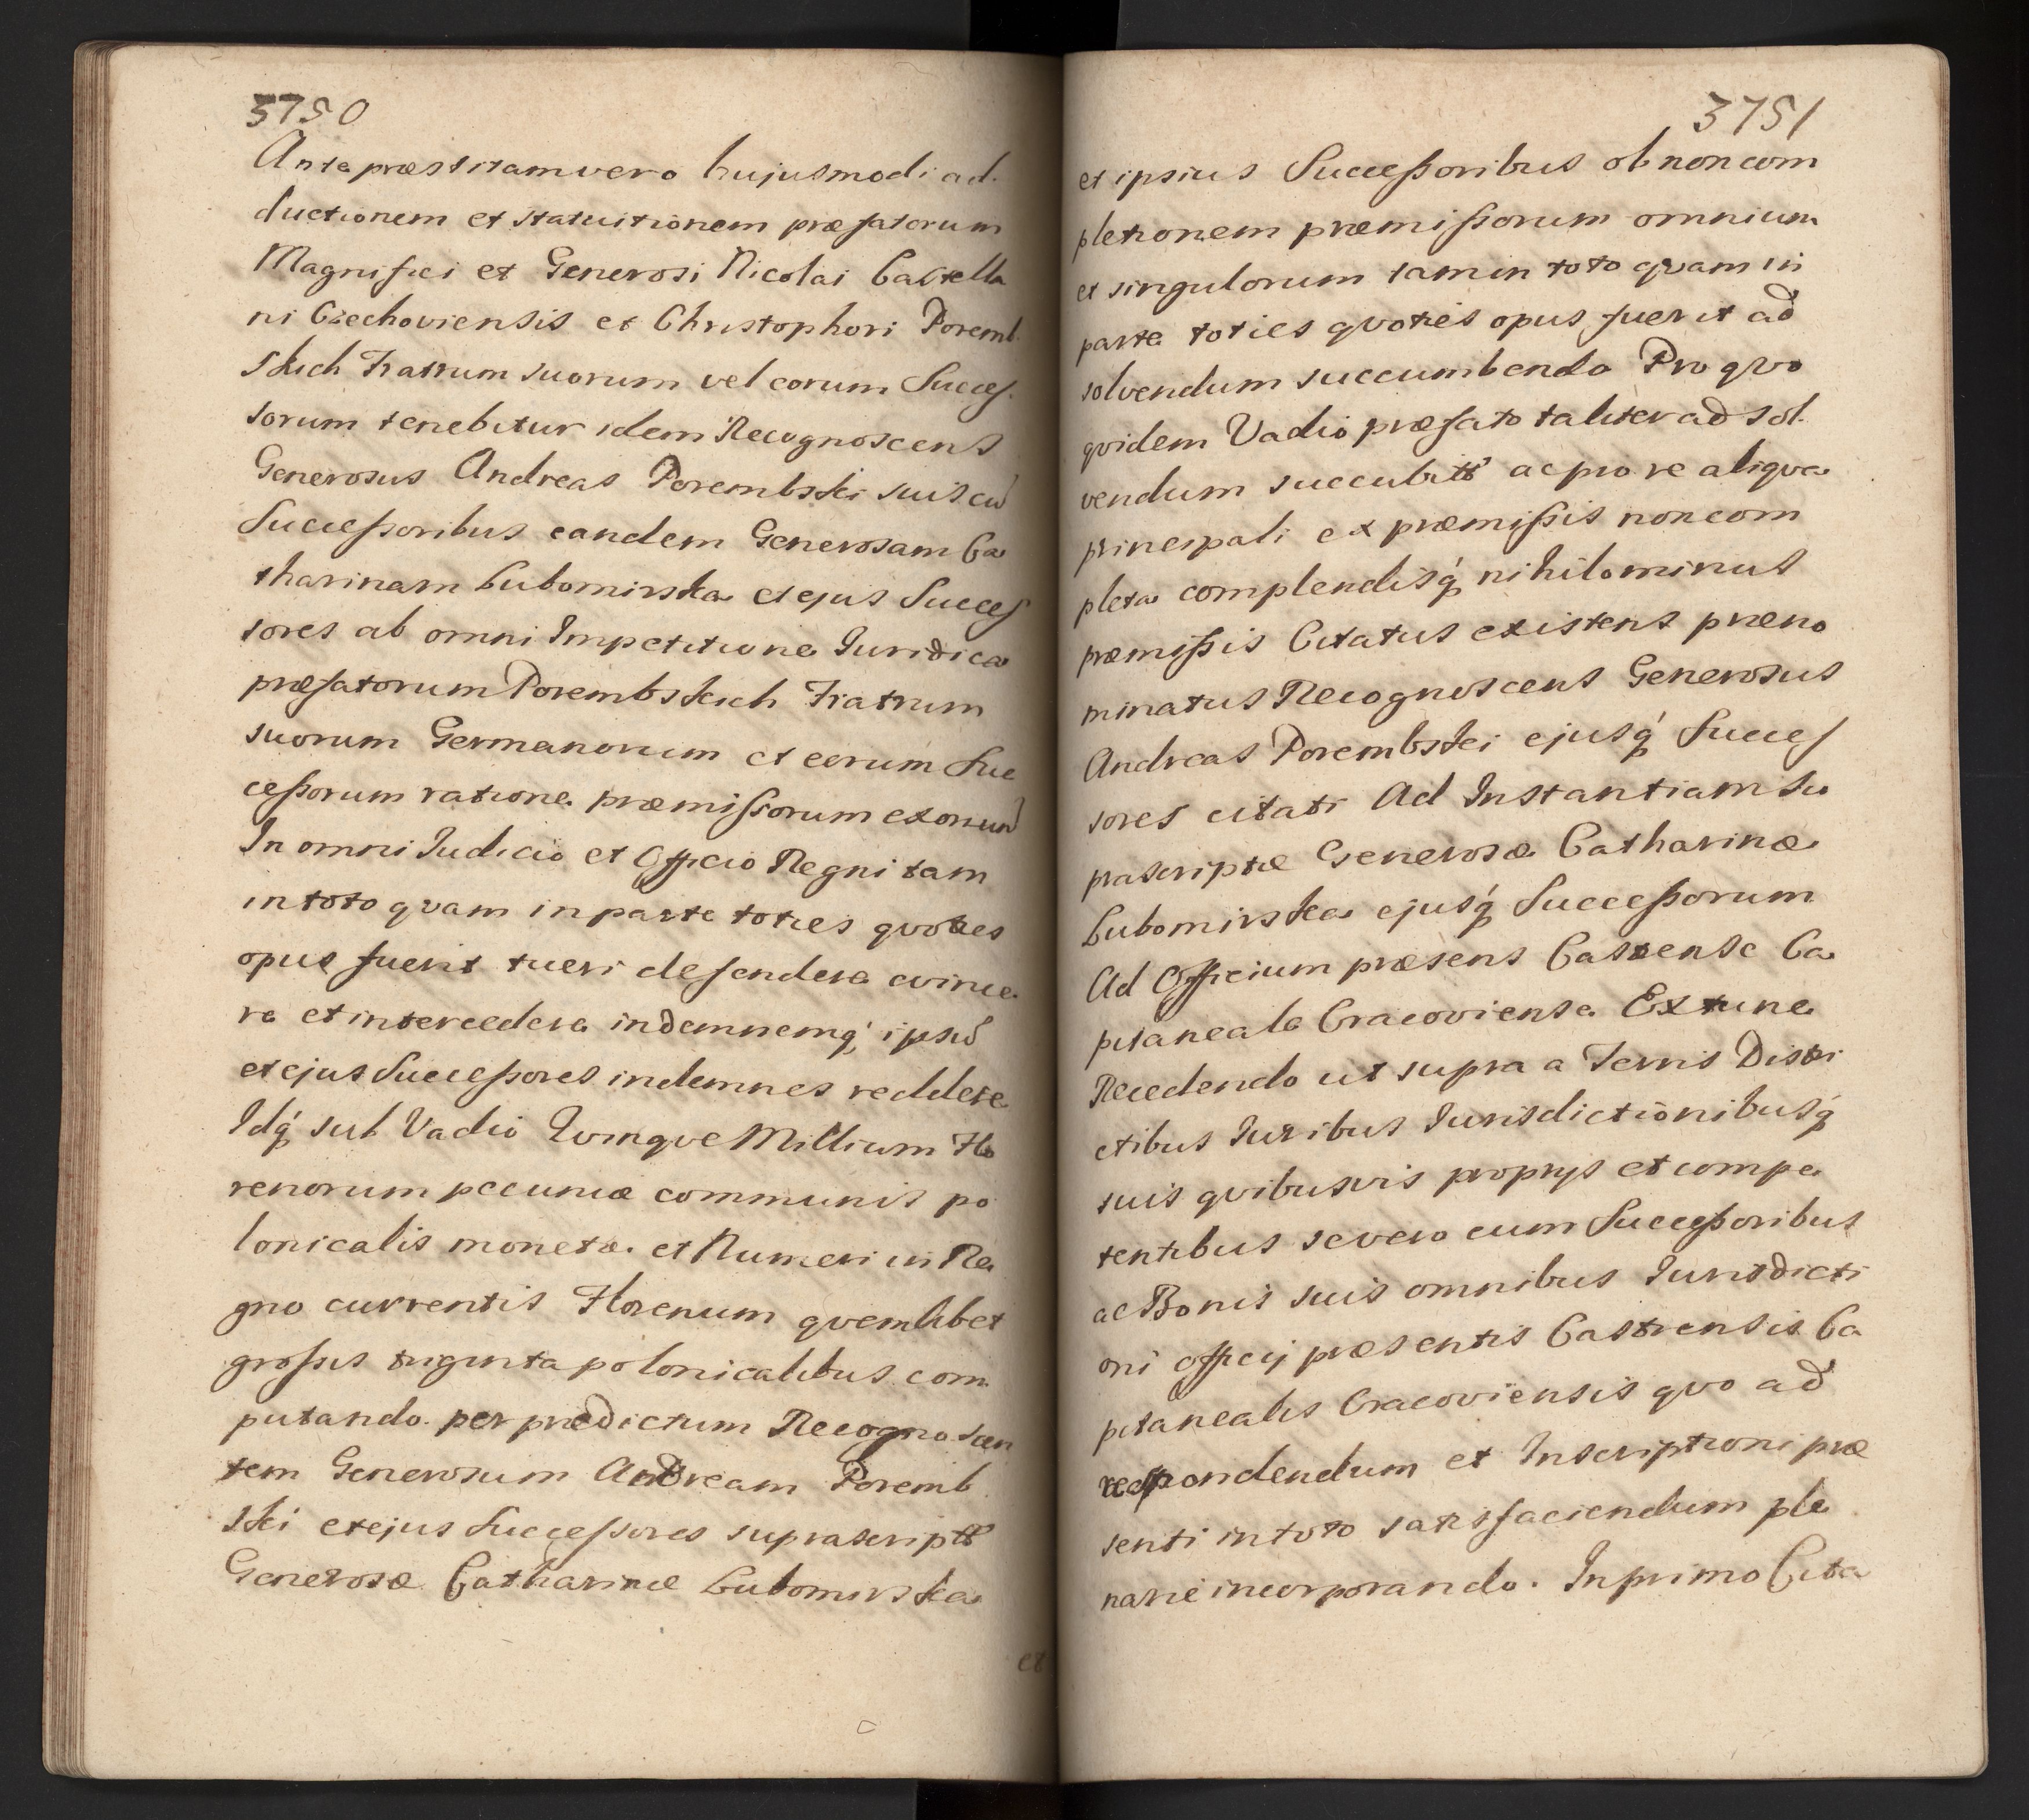 3750
Ante præstitam vero hujusmodi ad
ductionem et statuitionem præfatorum
Magnifici et Generosi Nicolai Castella
ni Czechoviensis et Christophori Poremb
skich Fratrum suorum vel eorum Succes
sorum tenebitur idem Recognoscens
Generosus Andreas Porembski suis cū
Successoribus eandem Generosam Ca
tharinam Lubomirska et ejus Succes
sores ab omni Impetitione Juridica
præfatorum Porembskich Fratrum
suorum Germanorum et eorum Suc
cessorum ratione præmissorum
In omni Judicio et Officio Regni tam
in toto qvam in parte toties qvoties
opus fuerit tueri defendere evince
re et intercedere indemnemq́ ipsā
et ejus Successores indemnes reddere
Idq́ sub Vadio Qvinqve Millium Flo
renorum pecuniæ communis po
lonicalis monetæ et Numeri in Re
gno currentis Florenum qvemlibet
grossis triginta polonicalibus com
putando per prædictum Recognoscen
tem Generosum Andream Poremb
ski et ejus Successores
Generosæ Catharinæ Lubomirska
et
3751
et ipsius Successoribus ob non com
pletionem præmissorum omnium
et singulorum tam in toto qvam in
parte toties qvoties opus fuerit ad
solvendum succumbendo Pro qvo
qvidem Vadio præfato taliter ad sol
vendum ac pro re aliqva
principali ex præmissis non com
pleta complendisq́ nihilominus
præmissis Citatus existens præno
minatus Recognoscens Generosus
Andreas Porembski ejusq́ Succes
sores citati Ad Instantiam su
prascriptæ Generosæ Catharinæ
Lubomirska ejusq́ Successorum
Ad Officium præsens Castrense Ca
pitaneale Cracoviense Extunc
Recedendo ut supra a Terris Distri
ctibus Juribus Jurisdictionibusq́
suis qvibusvis proprijs et compe
tentibus se vero cum Successoribus
ac Bonis suis omnibus Jurisdicti
oni officij præsentis Castrensis Ca
pitanealis Cracoviensis qvo ad
respondendum et Inscriptioni præ
senti in toto satisfaciendum ple
narie incorporando. In primo Cita